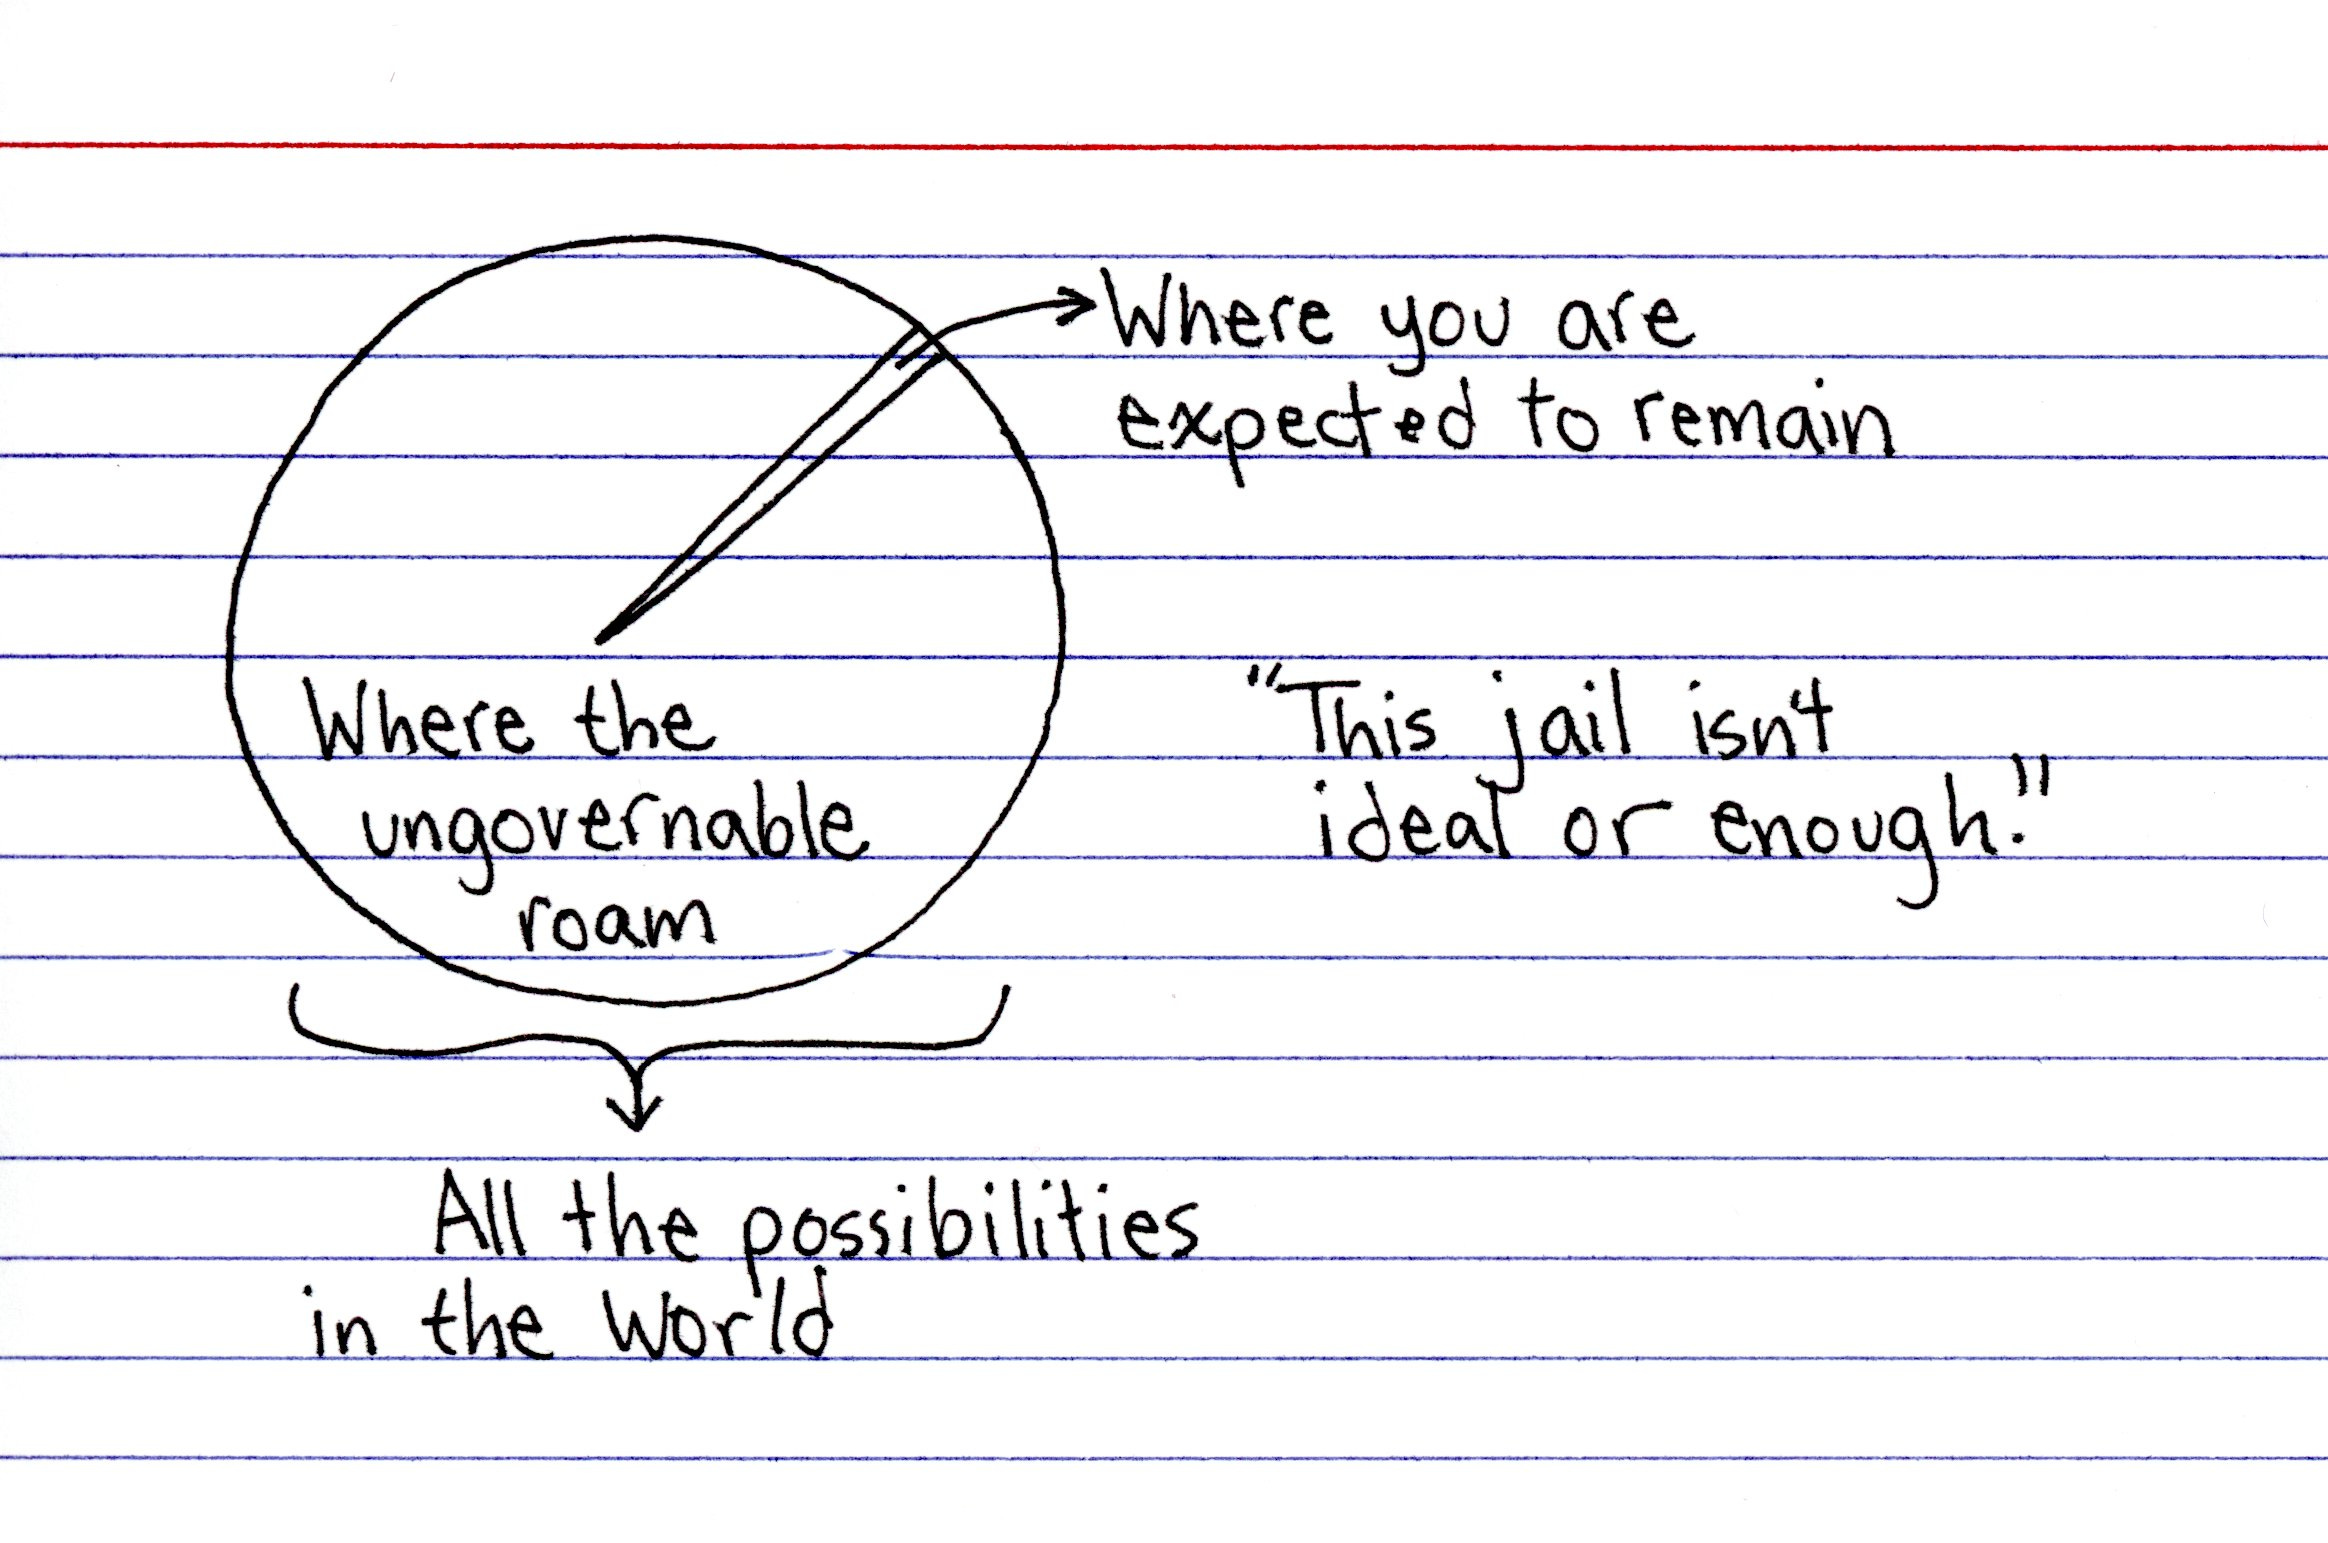 Where you are
expected to remain
Where the
ungovernable
roam
"This jail isn't
ideal or enough."
All the possibilities
in the world